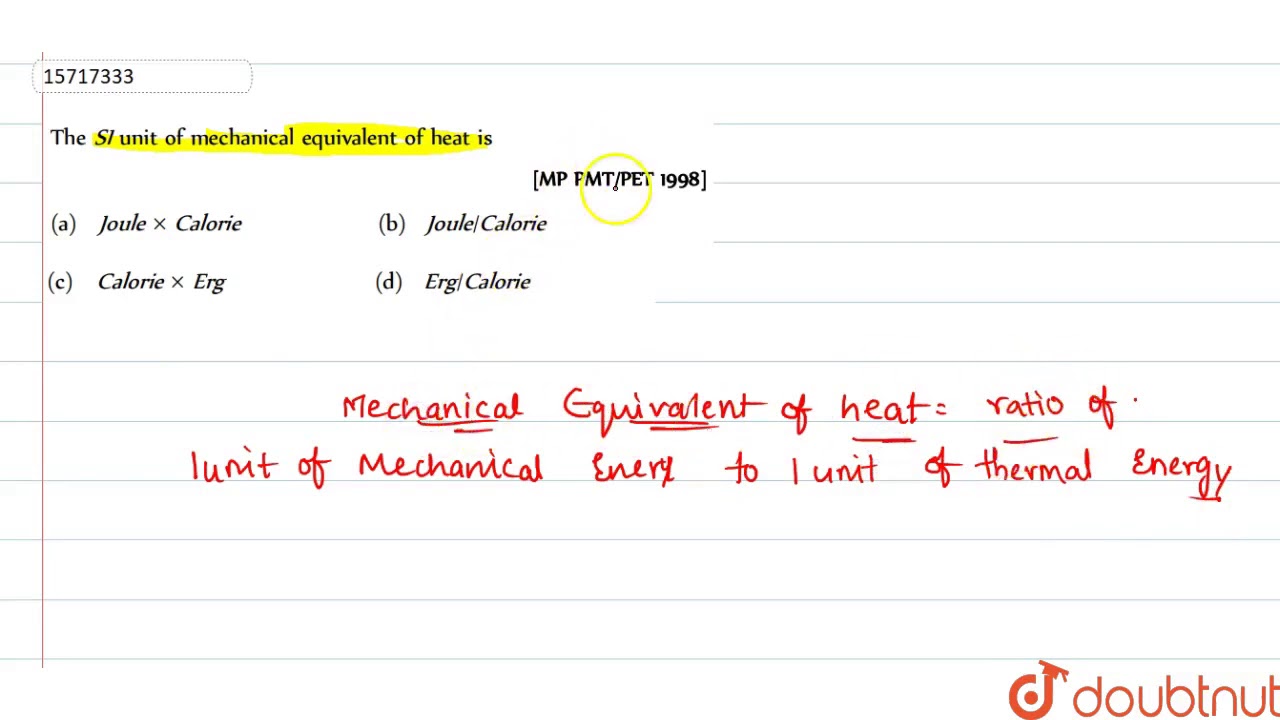 15717333
The SI unit of mechanical equivalent of heat is
[MP PMT/PET 1998]
(a) Joule × Calorie (b) Joule/Calorie
(c) Calorie × Erg (d) Erg/Calorie
Mechanical Equivalent of heat = ratio of
1 unit of Mechanical Energy to 1 unit of thermal Energy
doubtnut